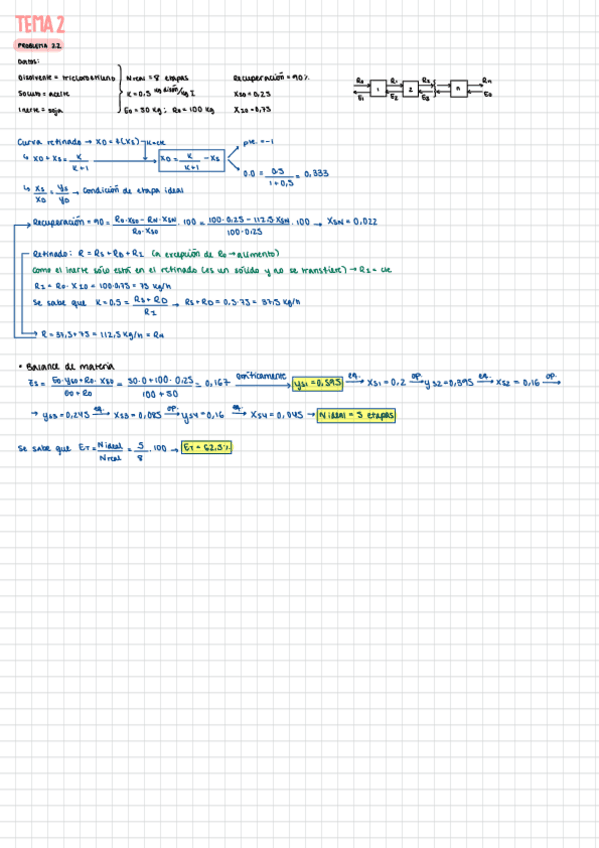 TEMA 2
PROBLEMA 2.2
Datos:
Disolvente = tricloroetileno N real = 8 etapas Recuperación = 90%
Soluto = aceite K = 0,5 kg disoln/kg I Xs0 = 0,25
Inerte = soja E0 = 50 kg; R0 = 100 kg XI0 = 0,75
R0 R1 R2 Rn
1 2 n
E1 E2 E3 E0
Curva retinado → XD = f(Xs) → K=cte
↳ XD + Xs = K/(K+1) → XD = K/(K+1) - Xs
pte. = -1
0.0 = 0.5/(1+0,5) = 0,333
↳ Xs/XD = ys/yD → Condición de etapa ideal
Recuperación = 90 = (R0·Xs0 - RN·XsN)/(R0·Xs0) · 100 = (100·0.25 - 112.5 XsN)/(100·0.25) · 100 → XsN = 0,022
Retinado: R = Rs + RD + RI (a excepción de R0 → alimento)
Como el inerte sólo está en el retinado (es un sólido y no se transfiere) → RI = cte
RI = R0 · XI0 = 100·0.75 = 75 kg/h
Se sabe que K = 0,5 = (Rs + RD)/RI → Rs + RD = 0,5·75 = 37,5 kg/h
→ R = 37,5 + 75 = 112,5 kg/h = RN
• Balance de materia
Zs = (E0·ys0 + R0·Xs0)/(E0 + R0) = (50·0 + 100·0,25)/(100 + 50) = 0,167 gráficamente → ys1 = 0,595 eq. → Xs1 = 0,2 op. → ys2 = 0,395 eq. → Xs2 = 0,16 op. →
→ ys3 = 0,245 eq. → Xs3 = 0,085 op. → ys4 = 0,16 eq. → Xs4 = 0,045 → N ideal = 5 etapas
Se sabe que ET = N ideal/N real = 5/8 · 100 → ET = 62,5%